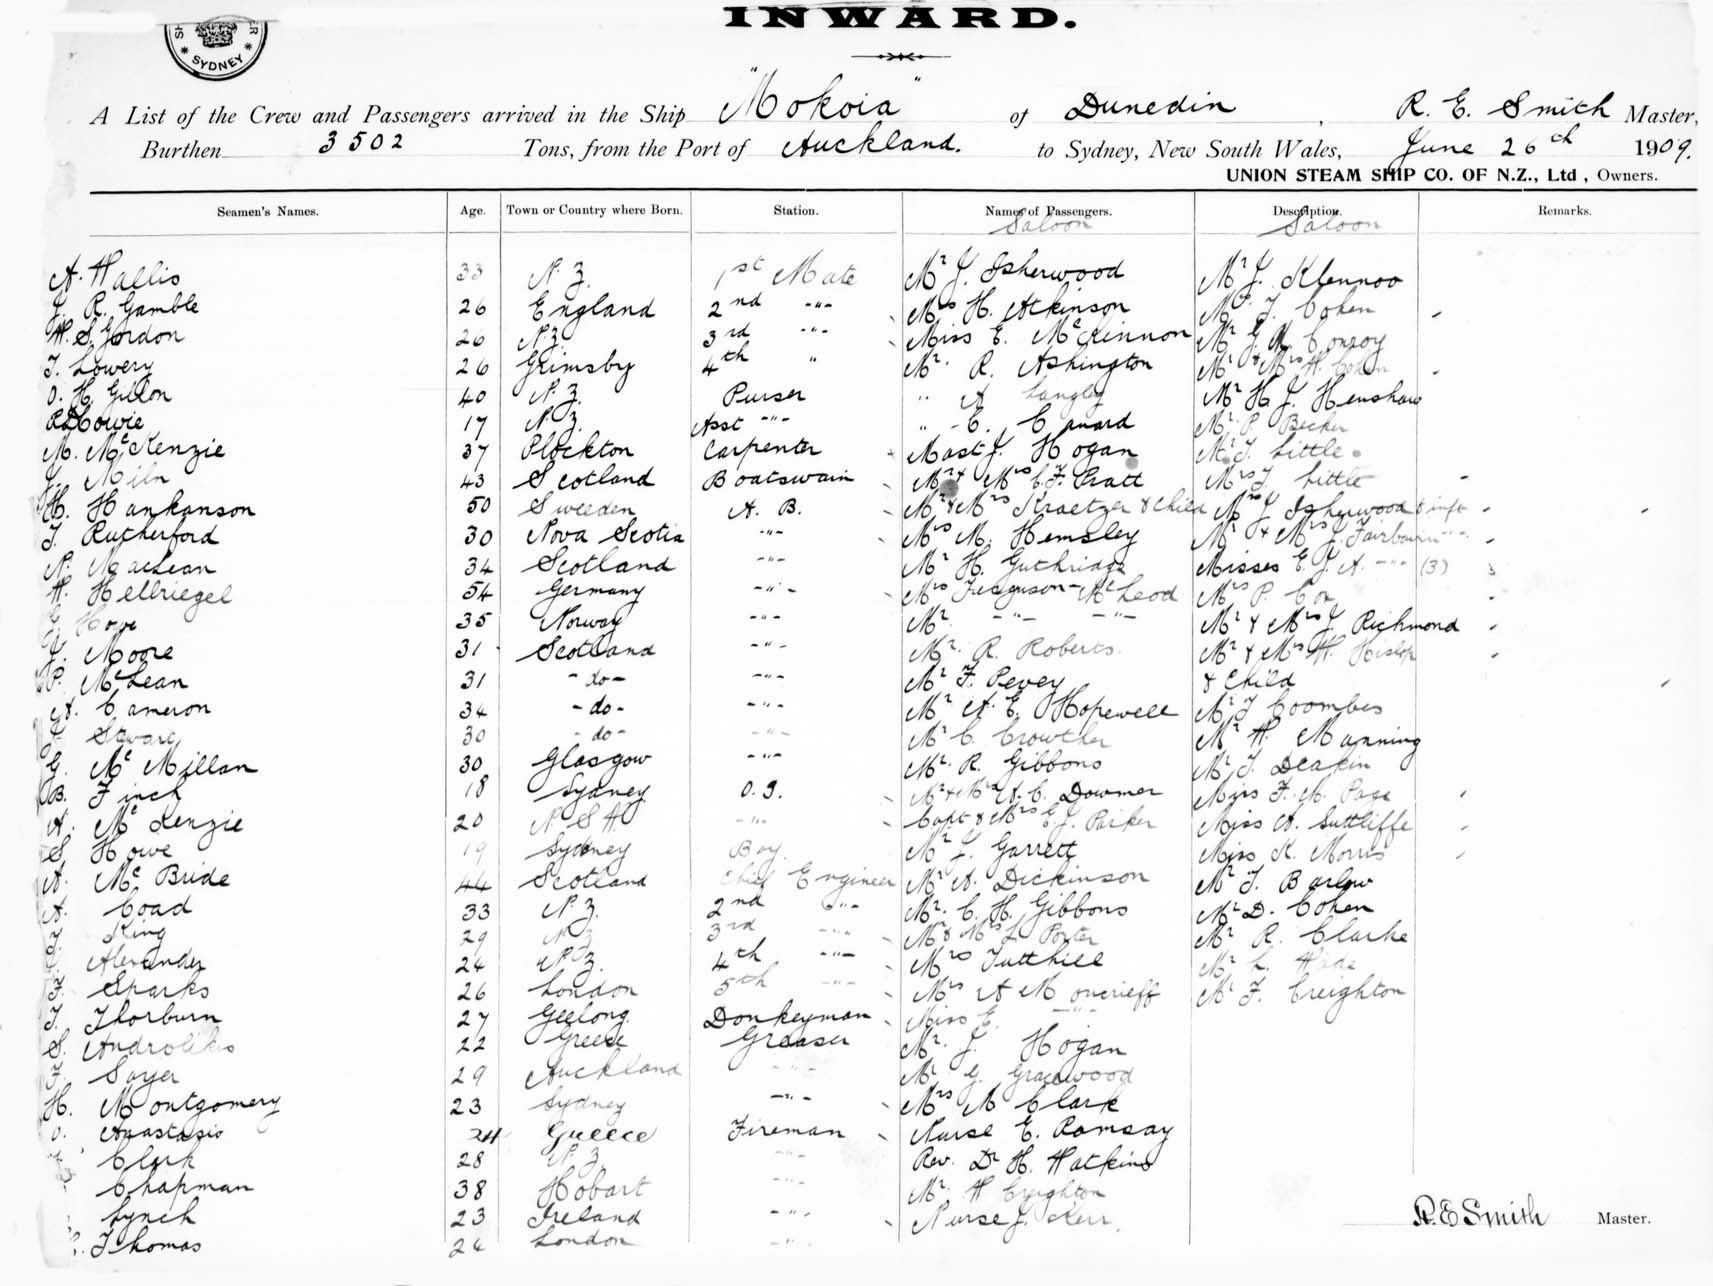 INWARD.
SYDNEY
A List of the Crew and Passengers arrived in the Ship "Mokoia" of Dunedin, R. E. Smith Master,
Burthen 3502 Tons, from the Port of Auckland. to Sydney, New South Wales, June 26th 1909.
UNION STEAM SHIP CO. OF N.Z., Ltd, Owners.
Seamen's Names. Age. Town or Country where Born. Station. Names of Passengers. Description. Remarks.
Saloon Saloon
A. Wallis 33 N.Z. 1st Mate Mr J. Isherwood Mr J.
J. R. Gamble 26 England 2nd -"- Mrs H. Atkinson Mr J. Cohen
W. S. Gordon 26 N.Z. 3rd -"- Miss E. McKinnon Mr G. Conroy
T. Lowery 26 Grimsby 4th " Mr. R. Ashington Mr & Mrs H. Cohen
O. H. Gillon 40 N.Z. Purser " A Langley Mr H J. Henshaw
Howie 17 N.Z. Asst -"- " E. Mr P. Becker
M. McKenzie 37 Plockton Carpenter Mast J. Hogan Mr J. Little
Miln 43 Scotland Boatswain Mr & Mrs C. F. Pratt Mrs J. Little
H. Hankanson 50 Sweeden A. B. Mr & Mrs Kraetzer & Child Mrs J Isherwood & inft
J. Rutherford 30 Nova Scotia -"- Mrs M. Hemsley Mr & Mrs J. Fairbairn -"-
N. MacLean 34 Scotland -"- Mr H. Guthridge Misses E. J. A. -"- (3)
H. Hellriegel 54 Germany -"- Mrs Ferguson-McLeod Mrs P. Cox
Hove 35 Norway -"- Mr. -"- -"- Mr & Mrs J. Richmond
J. Moore 31 Scotland -"- Mr. R. Roberts. Mr & Mrs H. Hislop
P. McLean 31 -do- -"- Mr F. Pevey & Child
A. Cameron 34 -do- -"- Mr A. E. Hopewell Mr J Coombes
Stewart 30 -do- -"- Mr C. Crowther Mr H. Manning
G. McMillan 30 Glasgow -"- Mr. R. Gibbons Mr J. Deakin
B. Finch 18 Sydney O.S. Mr & Mrs A. C. Dowmer Miss F. M. Page
A. McKenzie 20 N.S.W. -"- Capt & Mrs E. J. Parker Miss A. Suttliffe
S. Howe 19 Sydney Boy Mr J. Garrett Miss K. Morris
A. McBride 44 Scotland Chief Engineer Mr A. Dickinson Mr J. Barlow
A. Coad 33 N.Z. 2nd -"- Mr. C. H. Gibbons Mr D. Cohen
King 29 N.Z. 3rd -"- Mr & Mrs L. Porter Mr R. Clarke
Alexander 24 N.Z. 4th -"- Mrs Tutthill Mr L. Wade
F. Sparks 26 London 5th -"- Mrs A Moncrieff Mr F. Creighton
J. Thorburn 27 Geelong. Donkeyman Miss E. -"-
S. 22 Greece Greaser Mr. J. Hogan
F. Sayer 29 Auckland -"- Mr G.
H. Montgomery 23 Sydney -"- Mrs M Clark
Anastasio 24 Greece Fireman Nurse E. Ramsay
Clark 28 N.Z. -"- Rev. Dr H. Watkins
Chapman 38 Hobart -"- Mr. H Creighton
Lynch 23 Ireland -"- Nurse J. Kerr.
Thomas London -"-
R. E Smith Master.